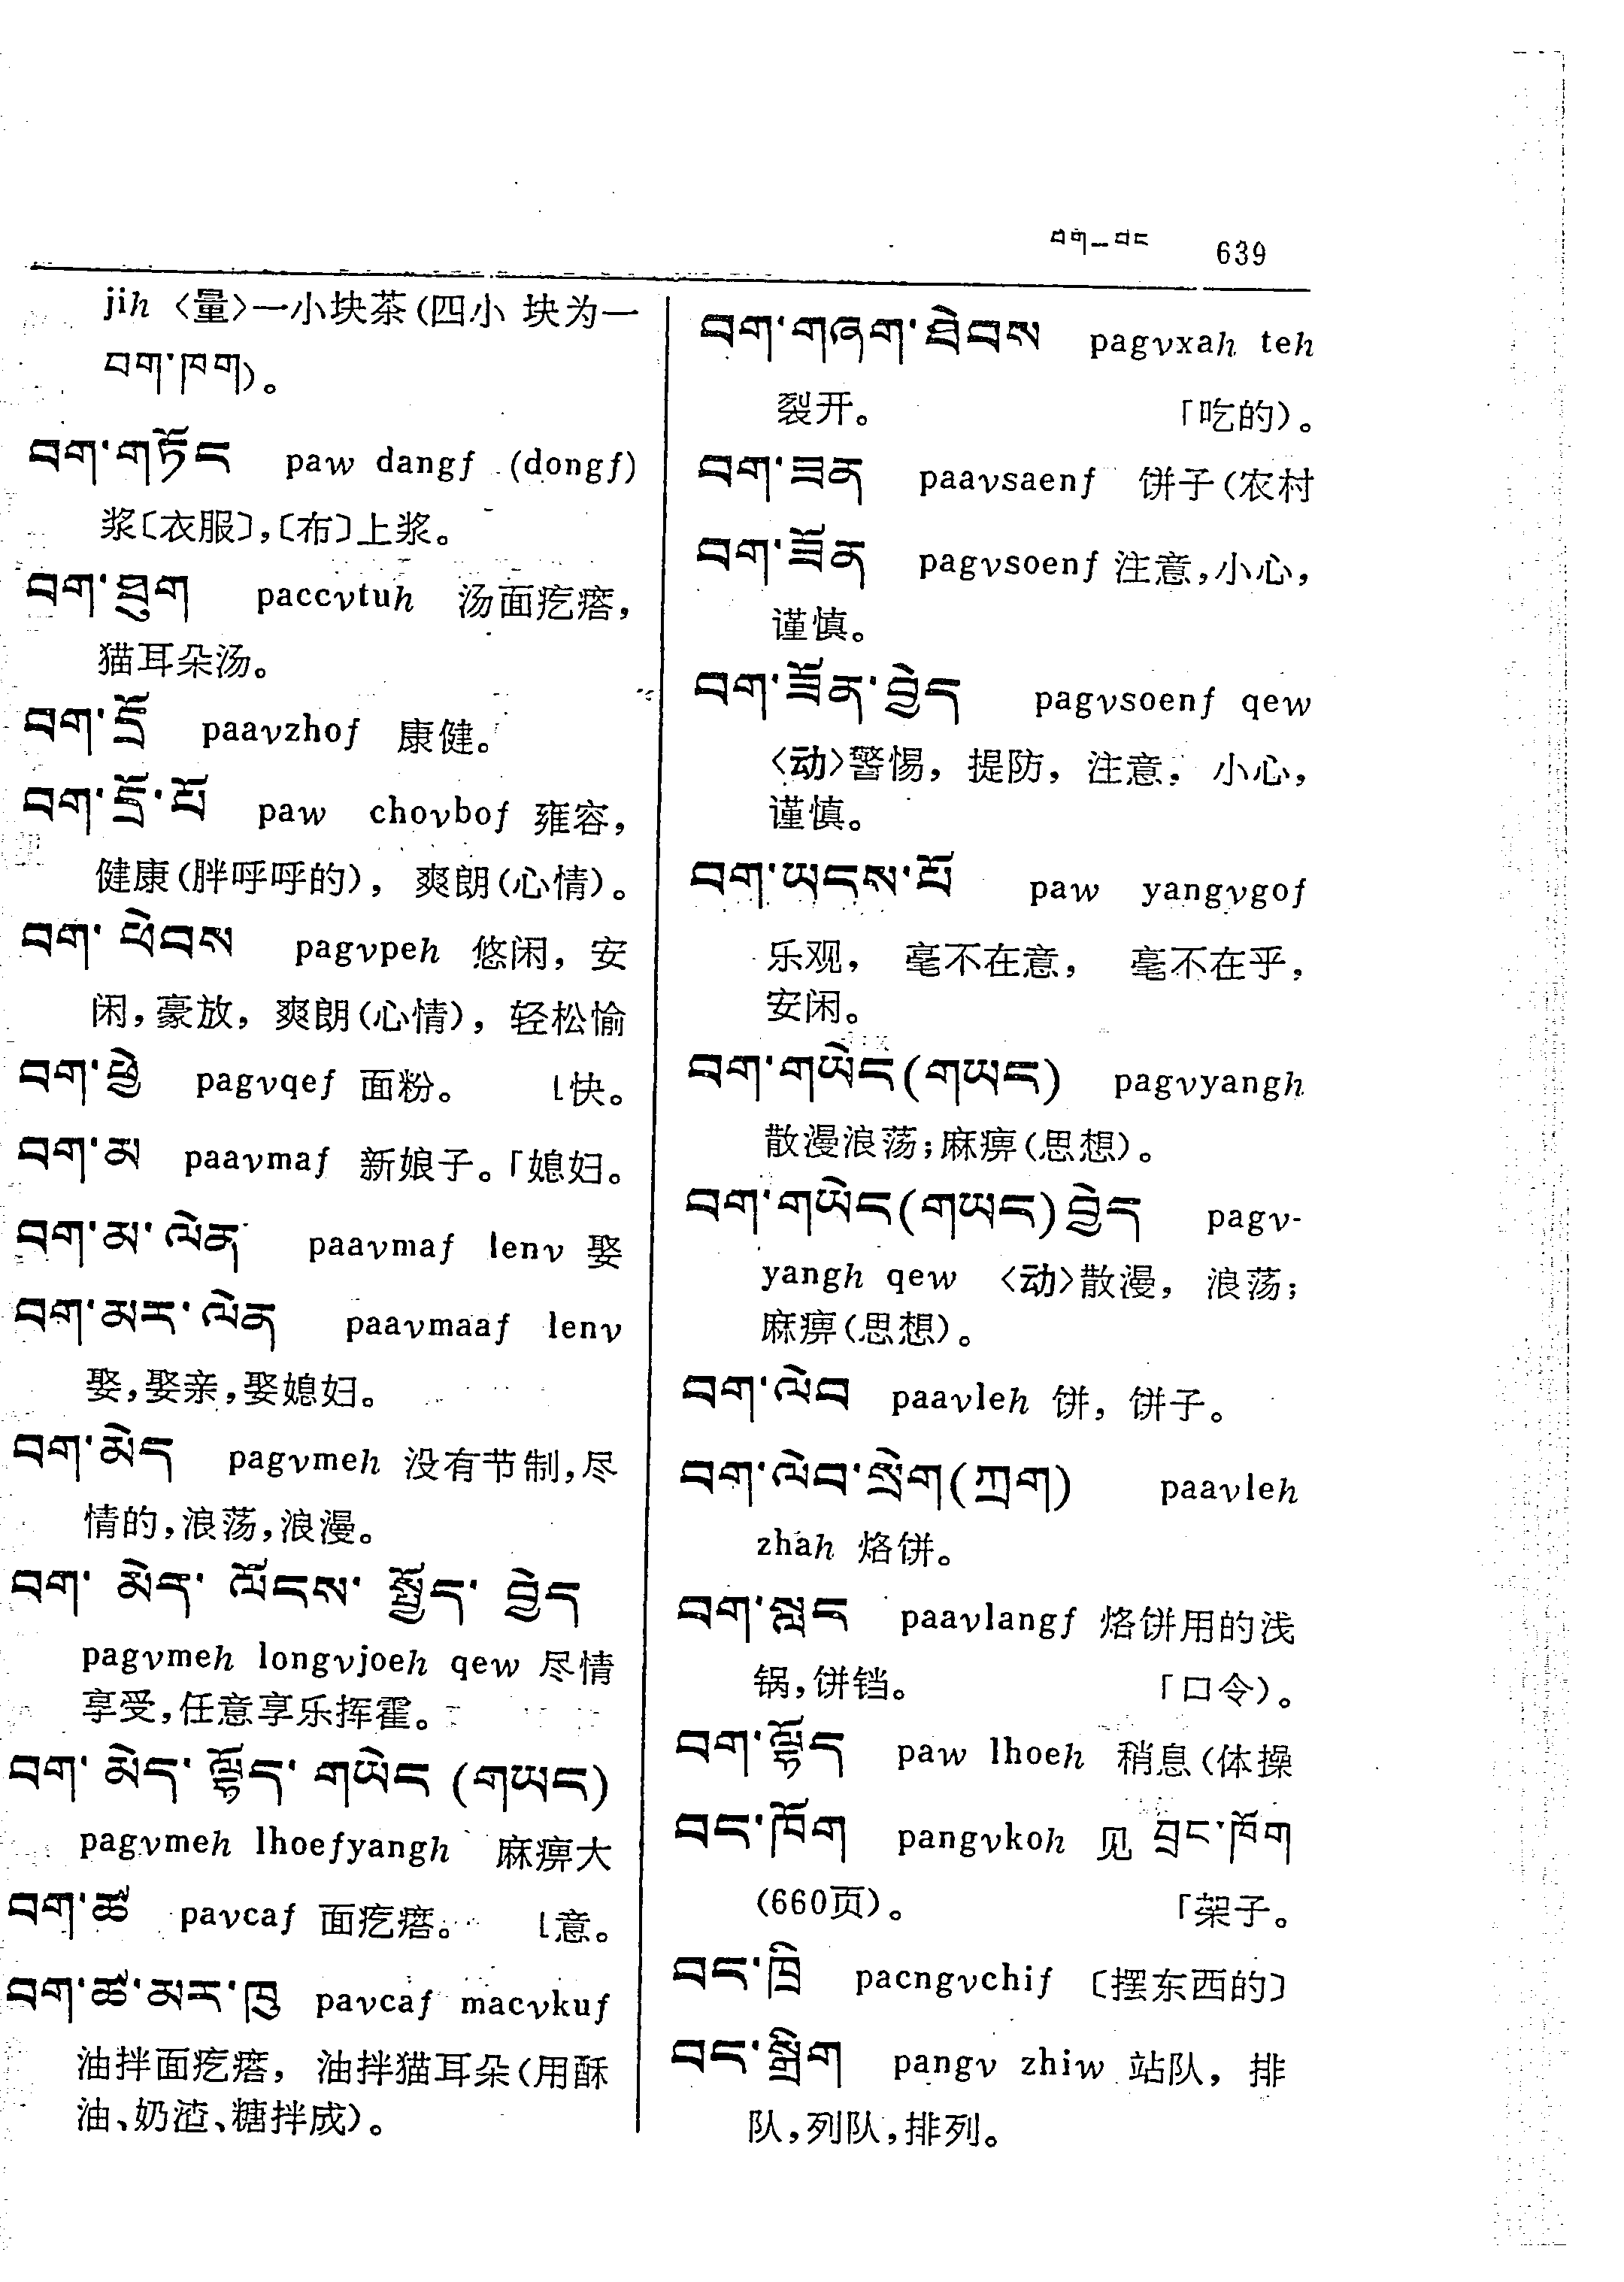 བག—བང 639
jih 〈量〉一小块茶(四小 块为一
བག་ཁག)。
བག་གཏོང paw dangf (dongf)
浆〔衣服〕,〔布〕上浆。
བག་ཐུག paccvtuh 汤面疙瘩,
猫耳朵汤。
བག་དྲོ paavzhof 康健。
བག་དྲོ་པོ paw chovbof 雍容,
健康(胖呼呼的), 爽朗(心情)。
བག་ཕེབས pagvpeh 悠闲, 安
闲,豪放, 爽朗(心情), 轻松愉
བག་ཕྱེ pagvqef 面粉。 ⌊快。
བག་མ paavmaf 新娘子。「媳妇。
བག་མ་ལེན paavmaf lenv 娶
བག་མར་ལེན paavmaaf lenv
娶,娶亲,娶媳妇。
བག་མེད pagvmeh 没有节制,尽
情的,浪荡,浪漫。
བག་མེད་ལོངས་སྤྱོད་བྱེད
pagvmeh longvjoeh qew 尽情
享受,任意享乐挥霍。
བག་མེད་ལྷོད་གཡེང (གཡང)
pagvmeh lhoefyangh 麻痹大
བག་ཚ pavcaf 面疙瘩。 ⌊意。
བག་ཚ་མར་ཁུ pavcaf macvkuf
油拌面疙瘩, 油拌猫耳朵(用酥
油、奶渣、糖拌成)。
བག་གཞག་ཐེབས pagvxah teh
裂开。 「吃的)。
བག་ཟན paavsaenf 饼子(农村
བག་ཟོན pagvsoenf 注意,小心,
谨慎。
བག་ཟོན་བྱེད pagvsoenf qew
〈动〉警惕, 提防, 注意, 小心,
谨慎。
བག་ཡངས་པོ paw yangvgof
乐观, 毫不在意, 毫不在乎,
安闲。
བག་གཡེང(གཡང) pagvyangh
散漫浪荡;麻痹(思想)。
བག་གཡེང(གཡང)བྱེད pagv-
yangh qew 〈动〉散漫, 浪荡;
麻痹(思想)。
བག་ལེབ paavleh 饼, 饼子。
བག་ལེབ་སྲེག(ཀྲག) paavleh
zhah 烙饼。
བག་སླང paavlangf 烙饼用的浅
锅,饼铛。 「口令)。
བག་ལྷོད paw lhoeh 稍息(体操
བང་ཁོག pangvkoh 见 བྲང་ཁོག
(660页)。 「架子。
བང་ཁྲི pacngvchif 〔摆东西的〕
བང་སྒྲིག pangv zhiw 站队, 排
队,列队,排列。